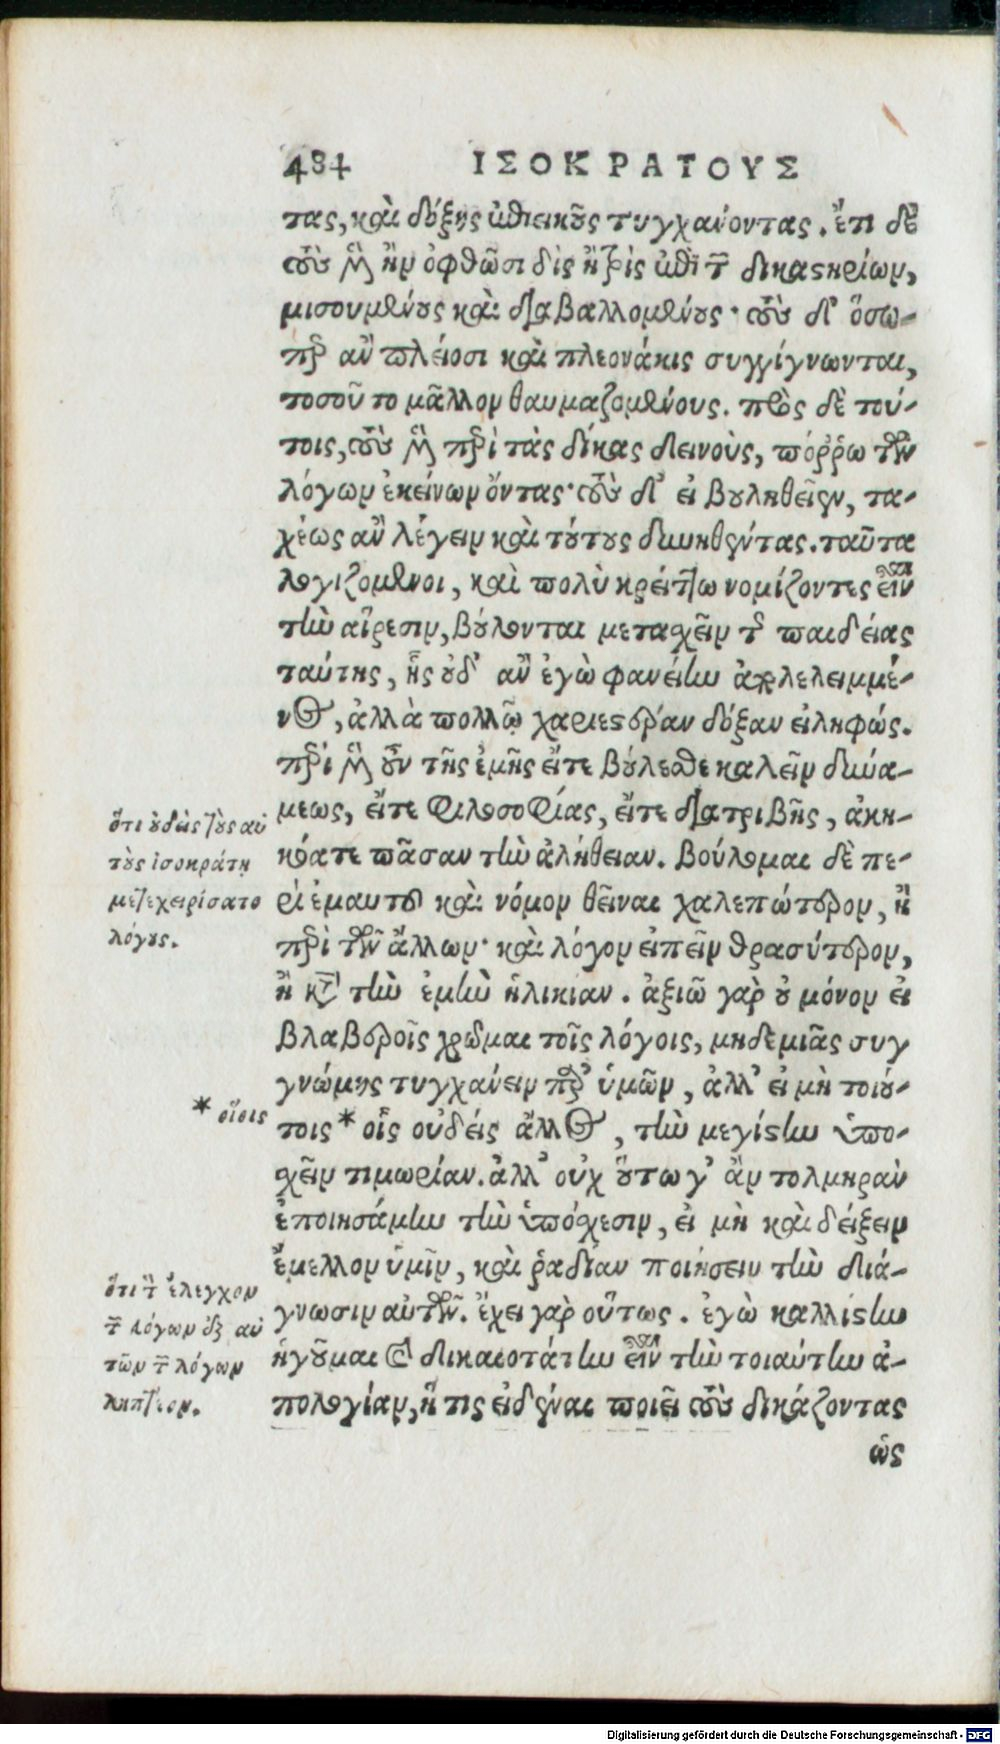 484 ΙΣΟΚΡΑΤΟΥΣ
τας, καὶ δόξης ἐπιεικοῦς τυγχάνοντας. ἔτι δὲ
τοὺς μὲν ἢν ὀφθῶσι δὶς ἢ τρὶς ἐπὶ τῶν δικαστηρίων,
μισουμένους καὶ διαβαλλομένους· τοὺς δ' ὅσω-
περ ἂν πλείοσι καὶ πλεονάκις συγγίγνωνται,
τοσοῦτο μᾶλλον θαυμαζομένους. πρὸς δὲ τού-
τοις, τοὺς μὲν περὶ τὰς δίκας δεινοὺς, πόῤῥω τῶν
λόγων ἐκείνων ὄντας· τοὺς δ' εἰ βουληθεῖεν, τα-
χέως ἂν λέγειν καὶ τούτους δυνηθέντας. ταῦτα
λογιζόμενοι, καὶ πολὺ κρείττω νομίζοντες εἶναι
τὴν αἵρεσιν, βούλονται μετασχεῖν τῆς παιδείας
ταύτης, ἧς οὐδ' ἂν ἐγὼ φανείην ἀπολελειμμέ-
νος, ἀλλὰ πολλῷ χαριεστέραν δόξαν εἰληφώς.
περὶ μὲν οὖν τῆς ἐμῆς εἴτε βούλεσθε καλεῖν δυνά-
μεως, εἴτε φιλοσοφίας, εἴτε διατριβῆς, ἀκη-
κόατε πᾶσαν τὴν ἀλήθειαν. βούλομαι δὲ πε-
ρὶ ἐμαυτοῦ καὶ νόμον θεῖναι χαλεπώτερον, ἢ
περὶ τῶν ἄλλων· καὶ λόγον εἰπεῖν θρασύτερον,
ἢ κατὰ τὴν ἐμὴν ἡλικίαν. ἀξιῶ γὰρ οὐ μόνον εἰ
βλαβεροῖς χρῶμαι τοῖς λόγοις, μηδεμιᾶς συγ
γνώμης τυγχάνειν παρ' ὑμῶν, ἀλλ' εἰ μὴ τοιού-
τοις * οἷς οὐδείς ἄλλος, τὴν μεγίστην ὑπο-
σχεῖν τιμωρίαν. ἀλλ' οὐχ οὕτω γ' ἂν τολμηρὰν
ἐποιησάμην τὴν ὑπόσχεσιν, εἰ μὴ καὶ δείξειν
ἔμελλον ὑμῖν, καὶ ῥαδίαν ποιήσειν τὴν διά-
γνωσιν αὐτῶν. ἔχει γὰρ οὕτως. ἐγὼ καλλίστην
ἡγοῦμαι καὶ δικαιοτάτην εἶναι τὴν τοιαύτην ἀ-
πολογίαν, ἥ τις εἰδέναι ποιεῖ τοὺς δικάζοντας
ὡς
ὅτι οὐδεὶς τοὺς αὐ
τοὺς ἰσοκράτῃ
μετεχειρίσατο
λόγους.
* οἵοις
ὅτι τὸν ἔλεγχον
τῶν λόγων ἐξ αὐ
τῶν τῶν λόγων
ληπτέον.
Digitalisierung gefördert durch die Deutsche Forschungsgemeinschaft - DFG